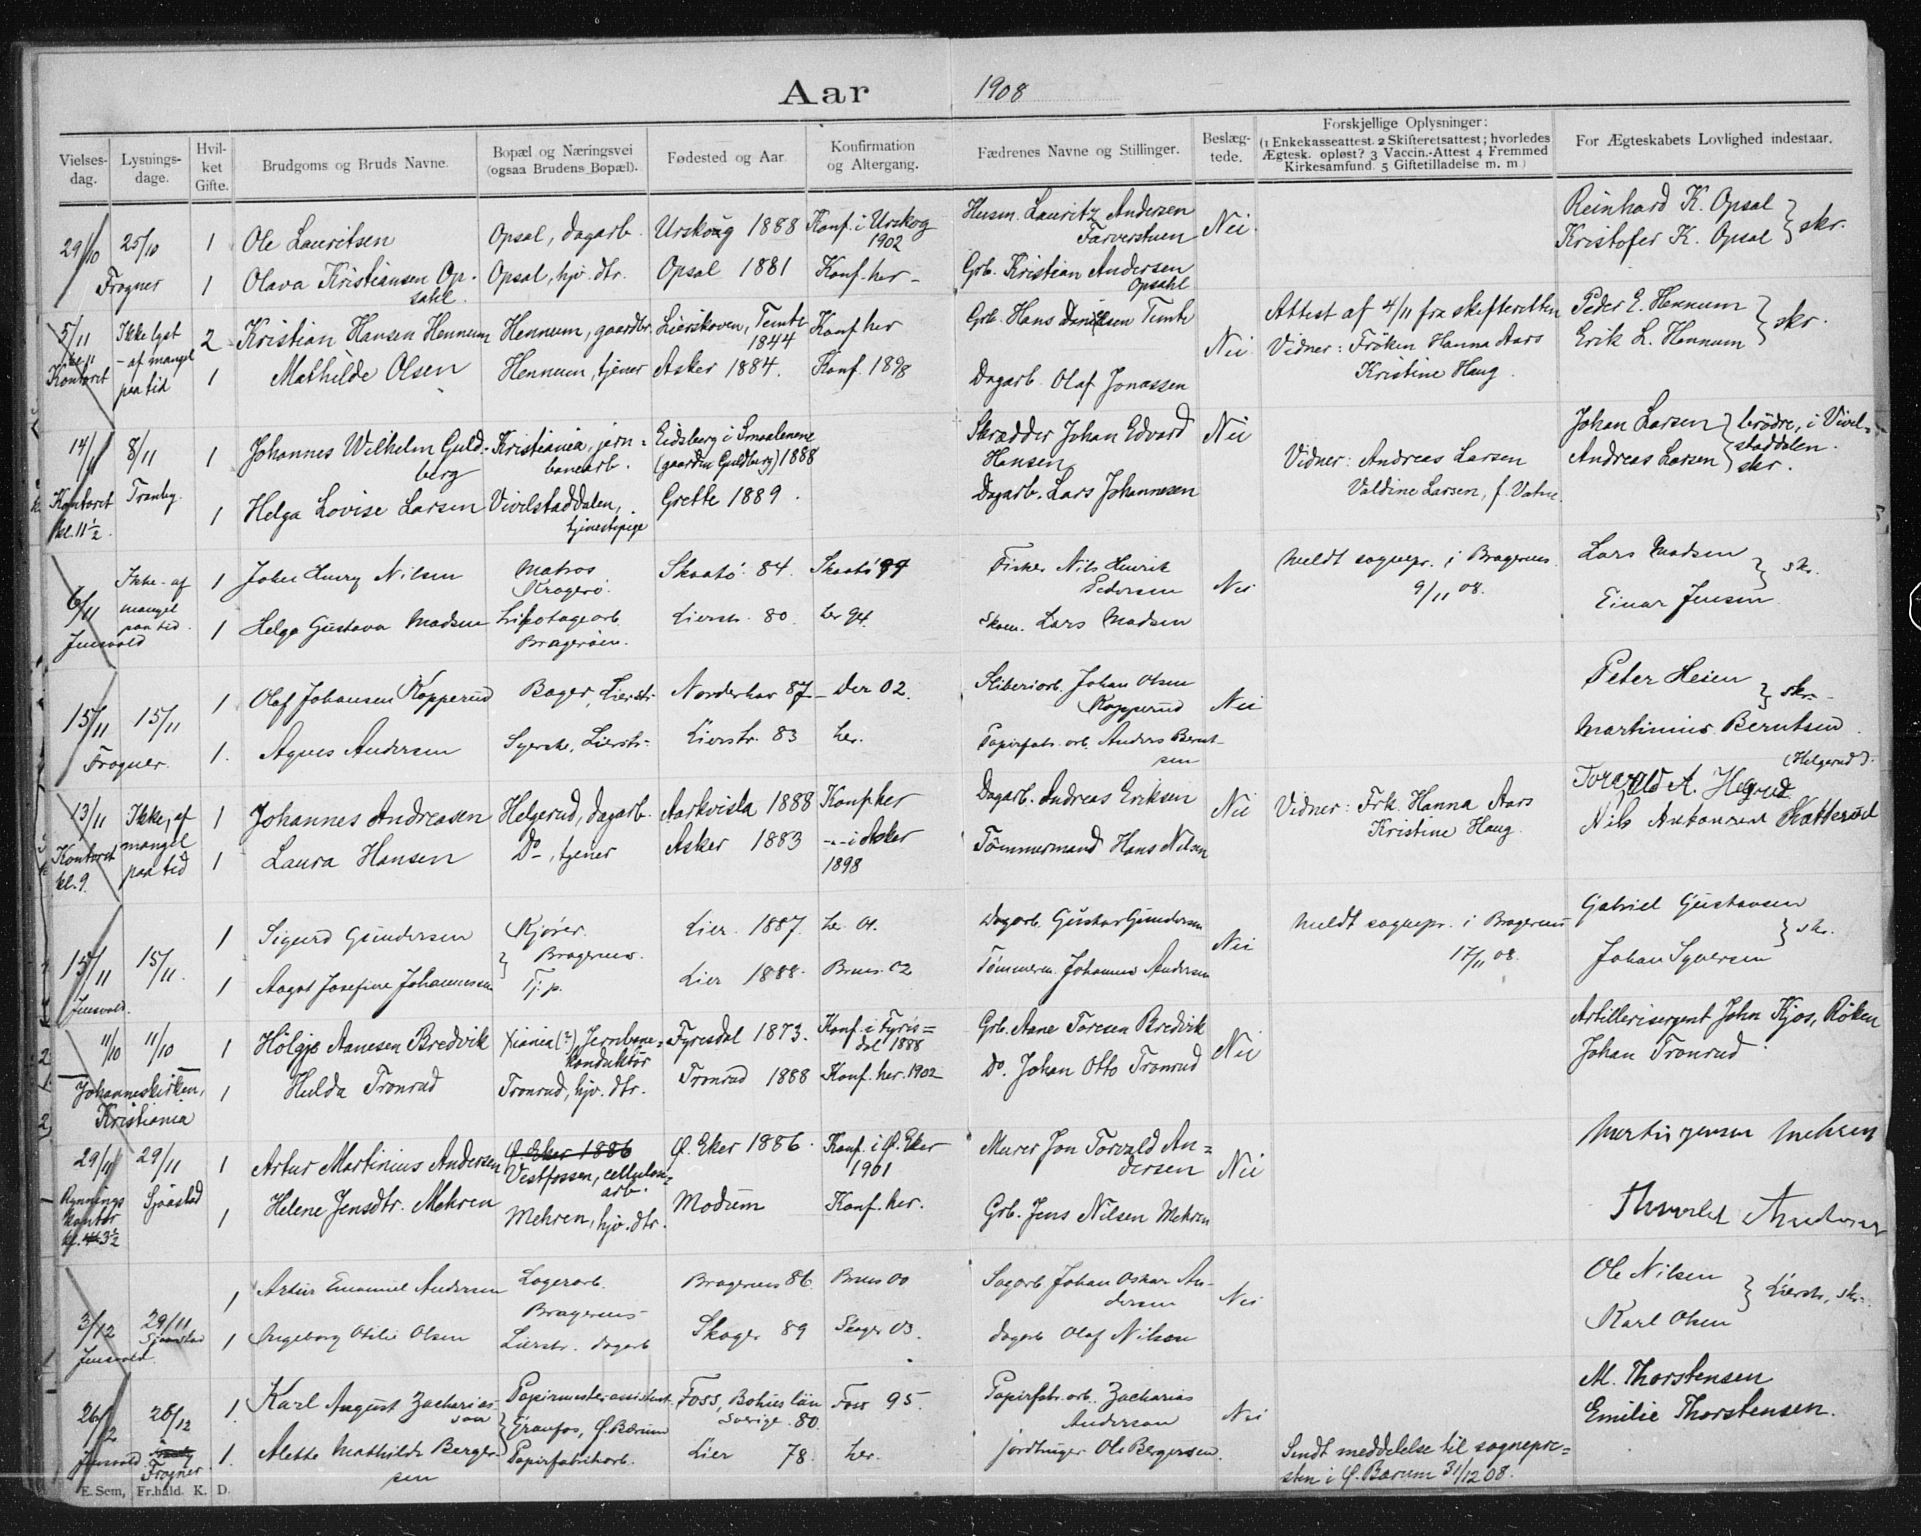 Aar 1908
Vielses-dag. Lysnings-dage. Hvil-ket Gifte. Brudgoms og Bruds Navne. Bopæl og Næringsvei (ogsaa Brudens Bopæl). Fødested og Aar. Konfirmation og Altergang. Fædrenes Navne og Stillinger. Beslæg-tede. Forskjellige Oplysninger: (1 Enkekasseattest. 2 Skifteretsattest; hvorledes Ægtesk. opløst? 3 Vaccin.-Attest 4 Fremmed Kirkesamfund. 5 Giftetilladelse m. m.) For Ægteskabets Lovlighed indestaar.
29/10 25/10 1 Ole Lauritsen Opsal, dagarb. Urskoug 1888 Konf. i Urskog 1902 Husm. Lauritz Andersen Nei Reinhard K. Opsal
Kristofer K. Opsal } skr.
Frogner 1 Olava Kristiansen Op-sahl. Opsal, hjv. dtr. Opsal 1881 Konf. her - Grb. Kristian Andersen Opsahl
5/11 Ikke lyst 2 Kristian Hansen Hennum Hennum, gaardbr. Lierskoven, Temte 1844 Konf. her Grb. Hans Danielsen Temte Nei Attest af 4/11 fra skifteretten Peder E. Hennum
Kontoret - af mangel paa tid 1 Mathilde Olsen Hennum, tjener Asker 1884. Konf. 1898 Dagarb. Olaf Jonassen Vidner: Frøken Hanna Aars
Kristine Haug. Erik L. Hennum } skr.
14/11 8/11 1 Johannes Wilhelm Guld-berg Kristiania, jern-banearb. Eidsberg i Smaalenene (gaarden Guldberg) 1888 Skrædder Johan Edvard Hansen Nei Vidner: Andreas Larsen Johan Larsen
Andreas Larsen } brødre, i Vivel-staddalen. skr.
Kontoret kl. 11 1/2 Tranby 1 Helga Lovise Larsen Vivilstaddalen, tjenestepige Grette 1889. Dagarb. Lars Johannesen Valdine Larsen, f. Vatne.
6/11 Ikke - af mangel paa tid 1 John Henry Nilsen Matros Kragerø. Skaatø 84. Skaatø 99 Fisker Nils Henrik Pedersen Nei Meldt sognepr. i Bragernes 9/11 08. Lars Madsen
Jensvold 1 Helga Gustava Madsen Bragerøen. Lierstr. 80. her 94. Lars Madsen Einar Jensen } skr.
15/11 15/11 1 Olaf Johansen Kopperud Bager, Lierstr. Norderhov 87 - Der 02. Sliberiarb. Johan Olsen Kopperud Nei Peter Heien } skr.
Frogner. 1. Agnes Andersen Syerske, Lierstr. Lierstr. 83 her. Papirfabr. arb. Anders Bernt-sen Martinius Berntsen.
13/11 Ikke, af mangel paa tid 1 Johannes Andreasen Helgerud, dagarb. Aarkvisla 1888 Konf. her Dagarb. Andreas Eriksen Nei Vidner: Frk. Hanna Aars (Helgerud).
Kontoret kl. 9. 1 Laura Hansen Do -, tjener Asker 1883 -"- i Asker 1898 Tømmermand Hans Nilsen Kristine Haug.
15/11 15/11. 1 Sigurd Gundersen Kjører. Bragernes. Lier. 1887. her 01. Dagarb. Gustav Gundersen Nei Meldt sognepr. i Bragernes 17/11 08. Gabriel Gustavsen
Jensvold. 1 Aagot Josefine Johannessen Tj. p. Lier 1888. Brnes. 02 Tømmerm. Johannes Andersen Johan Syversen } skr.
11/10 11/10 1 Holgje Aanesen Bredvik Xiania (?) Jernbane-konduktør Fyresdal 1873. Konf. i Fyris-dal 1888 Grb. Aane Toresen Bredvik Nei Artillerisergent John Kjos, Røken
Johanneskirken, Kristiania 1 Hulda Tronrud Tronrud, hjv. dtr. Tronrud 1888 Konf. her. 1902 Do. Johan Otto Tronrud Johan Tronrud
29/11 29/11 1 Artur Martinius Andersen Ø. Eker 1886 Vestfossen, cellulose-arb. Ø. Eker 1886. Konf. i Ø. Eker 1901 Murer Jon Torvald An-dersen Nei
Sjaastad 1 Helene Jensdtr. Mehren Mehren, hjv. dtr. Modum Konf. her. Grb. Jens Nilsen Mehren
3/12 29/11 Sjaastad 1 Artur Emanuel Andersen Lagerarb. Bragernes Bragernes 86 Brnes 00 Sagarb. Johan Oskar An-dersen Nei Ole Nilsen
Jensvold. 1 Ingeborg Otilie Olsen Lierstr. dagarb Skoger 89 Skoger 03. Dagarb Olaf Nilsen Karl Olsen } Lierstr, skr.
26/12 26/12 1. Karl August Zacharias-son Papirmesterassistent Granfos, Ø. Bærum Foss, Bohus län Sverige. 80. Foss 95. Papirfabr. arb. Zacharias Anderson Nei M. Thorstensen
Jensvold Frogner 1. Alette Mathilde Berger-sen Papirfabrikarb. Lier 78. her. jordbruger Ole Bergersen. Sendt meddelelse til sognepre-sten i Ø. Bærum 31/12 08. Emilie Thorstensen.
E. Sem, Fr.hald. K. D.